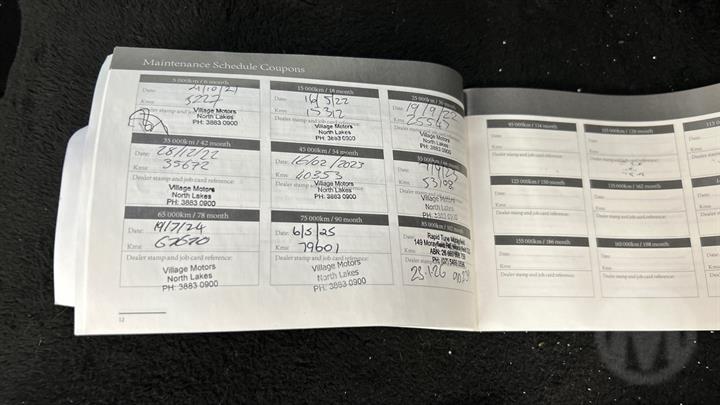 Maintenance Schedule Coupons
5 000km / 6 month
Date:
Kms: 5227
Dealer stamp and job card reference:
Village Motors
North Lakes
PH: 3883 0900
15 000km / 18 month
Date: 16/5/22
Kms: 15312
Dealer stamp and job card reference:
Village Motors
North Lakes
PH: 3883 0900
25 000km / 30 month
Date: 19/9/22
Kms: 25547
Dealer stamp
Village Motors
North Lakes
PH: 3883 0900
35 000km / 42 month
Date: 28/12/22
Kms: 35672
Dealer stamp and job card reference:
Village Motors
North Lakes
PH: 3883 0900
45 000km / 54 month
Date: 16/02/2023
Kms: 40353
Dealer stamp
Village Motors
North Lakes
PH: 3883 0900
55 000km / 66 month
Kms: 53108
Dealer stamp
Village Motors
North Lakes
65 000km / 78 month
Date: 19/7/24
Kms: 67670
Dealer stamp and job card reference:
Village Motors
North Lakes
PH: 3883 0900
75 000km / 90 month
Date: 6/5/25
Kms: 79601
Dealer stamp and job card reference:
Village Motors
North Lakes
PH: 3883 0900
85 000km / 102 month
Date:
Rapid Tune Morayfield
149 Morayfield
Kms:
ABN: 26
Dealer stamp
23-1-26
12
95 000km / 114 month
Date:
Kms:
Dealer stamp and job card reference:
105 000km / 126 month
Date:
Kms:
Dealer stamp and job card reference:
125 000km / 150 month
Date:
Kms:
Dealer stamp and job card reference:
135 000km / 162 month
Date:
Kms:
Dealer stamp and job card reference:
155 000km / 186 month
Date:
Kms:
Dealer stamp and job card reference:
165 000km / 198 month
Date:
Kms:
Dealer stamp and job card reference: